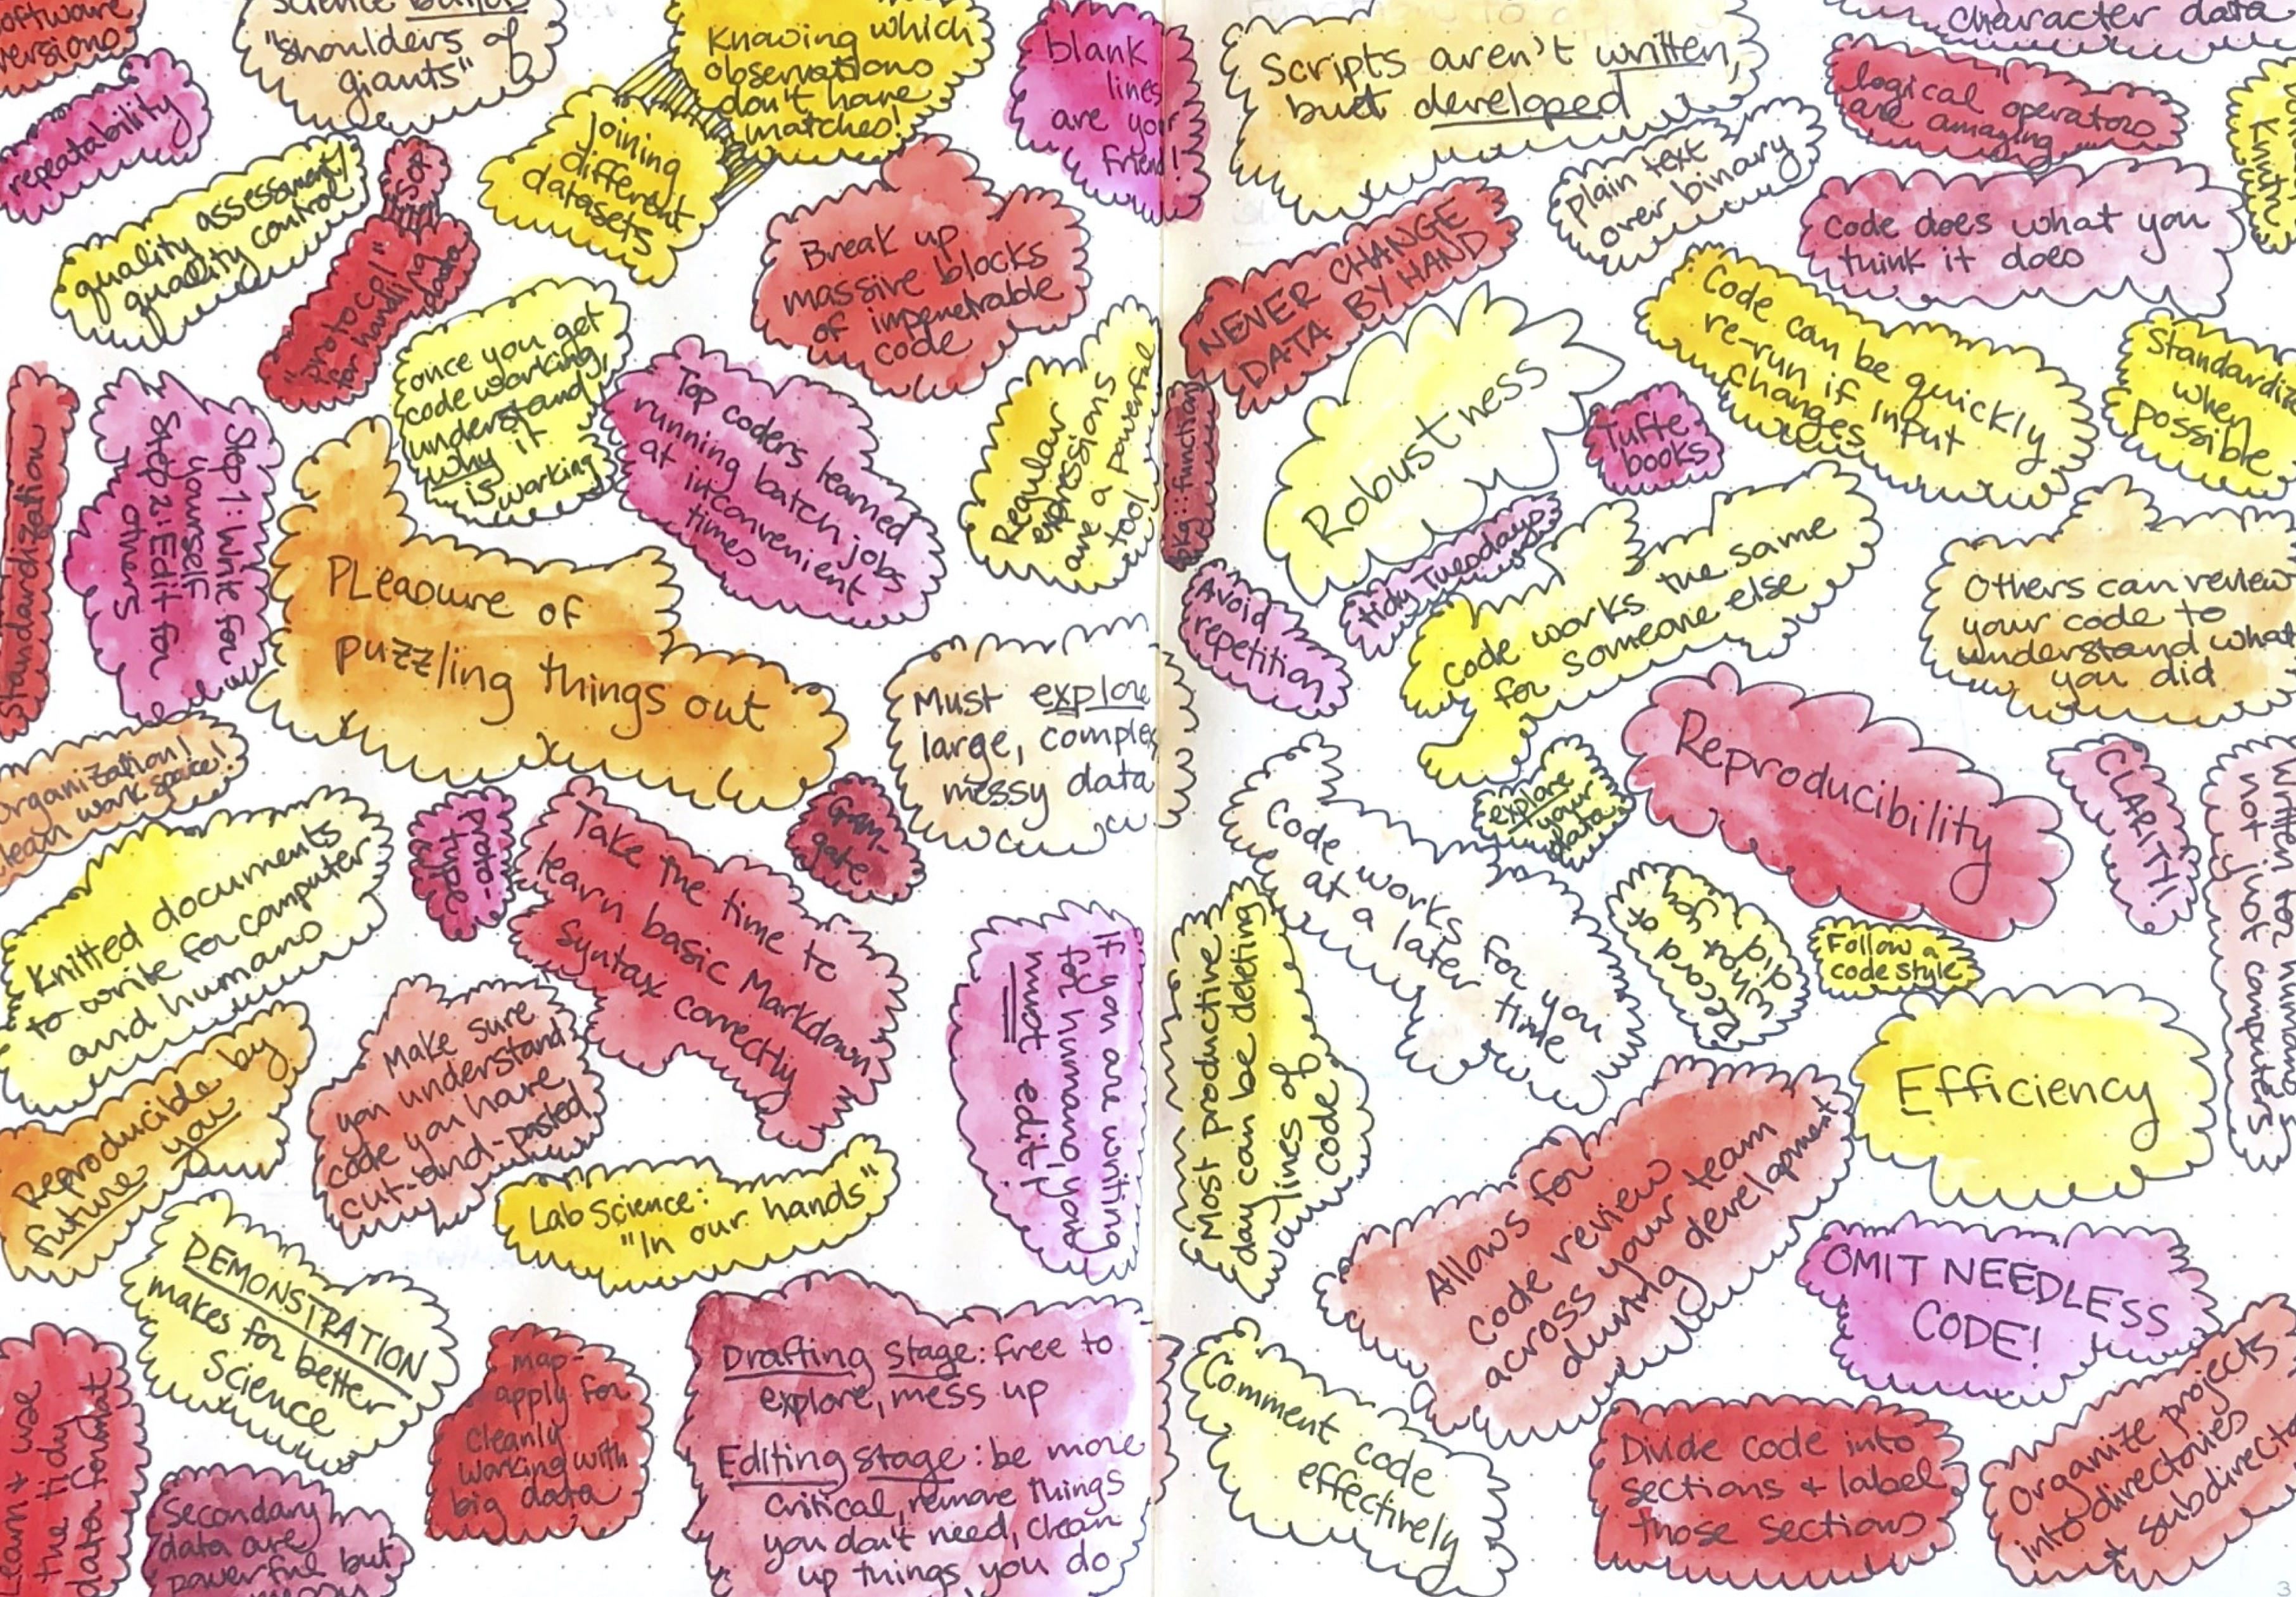 Software
versions
Science builds
"shoulders of
giants"
Knowing which
observations
don't have
matches!
joining
different
datasets
blank
lines
are your
friend!
repeatability
quality assessment/
quality control
"protocol"
for handling
data
Break up
massive blocks
of impenetrable
code
once you get
code working,
understand
why it
is working
Top coders learned
running batch jobs
at inconvenient
times
Regular
expressions
are a powerful
tool
standardization
Step 1: Write for
yourself
Step 2: Edit for
others
PLeasure of
puzzling things out
Must explore
large, complex,
messy data
organization!
clean work space!
Knitted documents
to write for computer
and humans
Take the time to
learn basic Markdown
syntax correctly
If you are writing
for humans, you
must edit!
Reproducible by
future you
Make sure
you understand
code you have
cut-and-pasted
Lab Science:
"In our hands"
DEMONSTRATION
makes for better
Science
map-
apply for
cleanly
working with
big data
Drafting Stage: free to
explore, mess up
Editing stage: be more
critical, remove things
you don't need, clean
up things you do
Learn & use
the tidy
data format
Secondary
data are
powerful but
Scripts aren't written,
but developed
character data
logical operators
are amazing
plain text
over binary
Code does what you
think it does
NEVER CHANGE
DATA BY HAND
Code can be quickly
re-run if input
changes
Standardi
when
possible
Robustness
Tufte
books
pkg::function
tidy Tuesdays
Avoid
repetition
Code works the same
for someone else
Others can review
your code to
understand what
you did
explore
your
data
Reproducibility
CLARITY!
Written for humans,
not just computers
Code works for you
at a later time
Record of
what you
did
Follow a
code style
Most productive
day can be deleting
lines of
code
Efficiency
Allows for
code review
across your team
during development
OMIT NEEDLESS
CODE!
Comment code
effectively
Divide code into
sections & label
those sections
Organize projects
into directories
& subdirecto
3